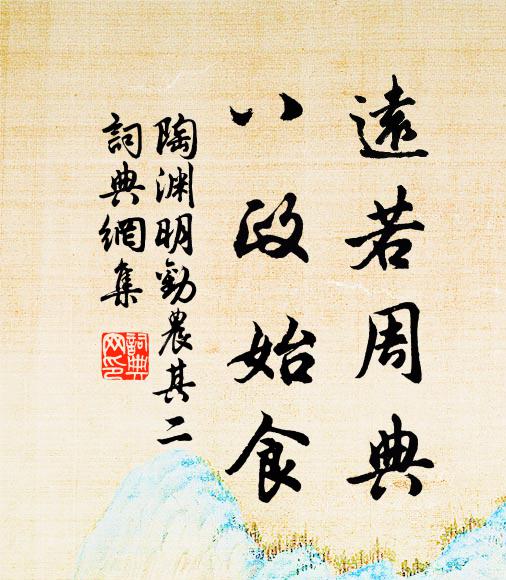 遠若周典
八政始食
陶渊明勸農其二
詞典網集
詞典网印